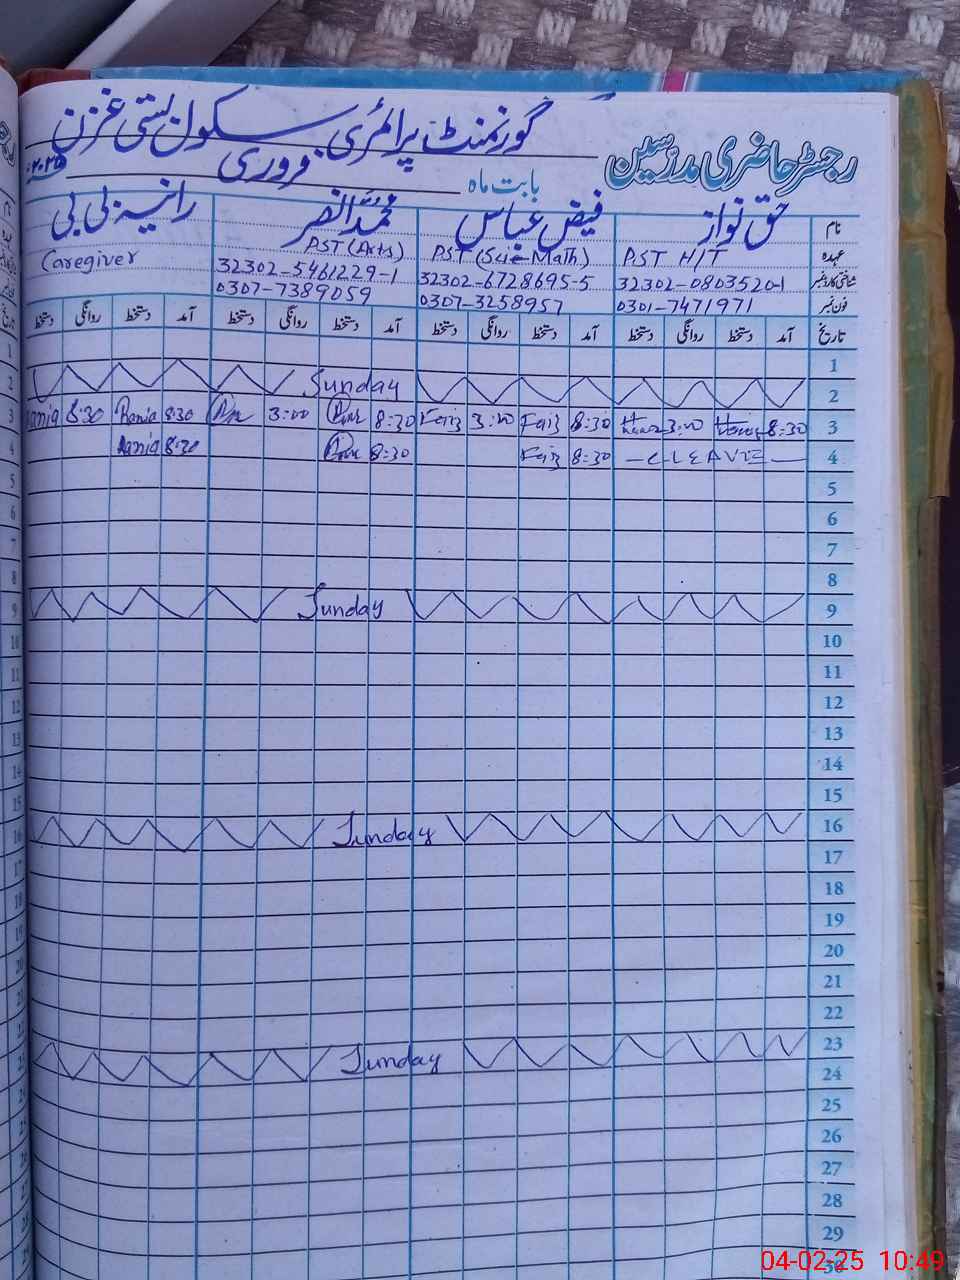 رجسٹر حاضری مدرسین گورنمنٹ پرائمری سکول بستی غزن
بابت ماہ فروری ۲۰۲۵
نام حق نواز فیض عباس رانیہ بی بی
عہدہ PST H/T PST (Sci-Math) PST (Arts) Caregiver
شناختی کارڈ نمبر 32302-0803520-1 32302-6728695-5 32302-5461229-1
فون نمبر 0301-7471971 0307-3258957 0307-7389059
تاریخ آمد دستخط روانگی دستخط آمد دستخط روانگی دستخط آمد دستخط روانگی دستخط آمد دستخط روانگی دستخط
1
2 Sunday
3 8:30 3:00 8:30 Faiz 3:00 Faiz 8:30 3:00 8:30 Rania 8:30 Rania
4 — C LEAVE — 8:30 Faiz 8:30 8:30 Rania
5
6
7
8
9 Sunday
10
11
12
13
14
15
16 Sunday
17
18
19
20
21
22
23 Sunday
24
25
26
27
28
29
30
04-02-25 10:49